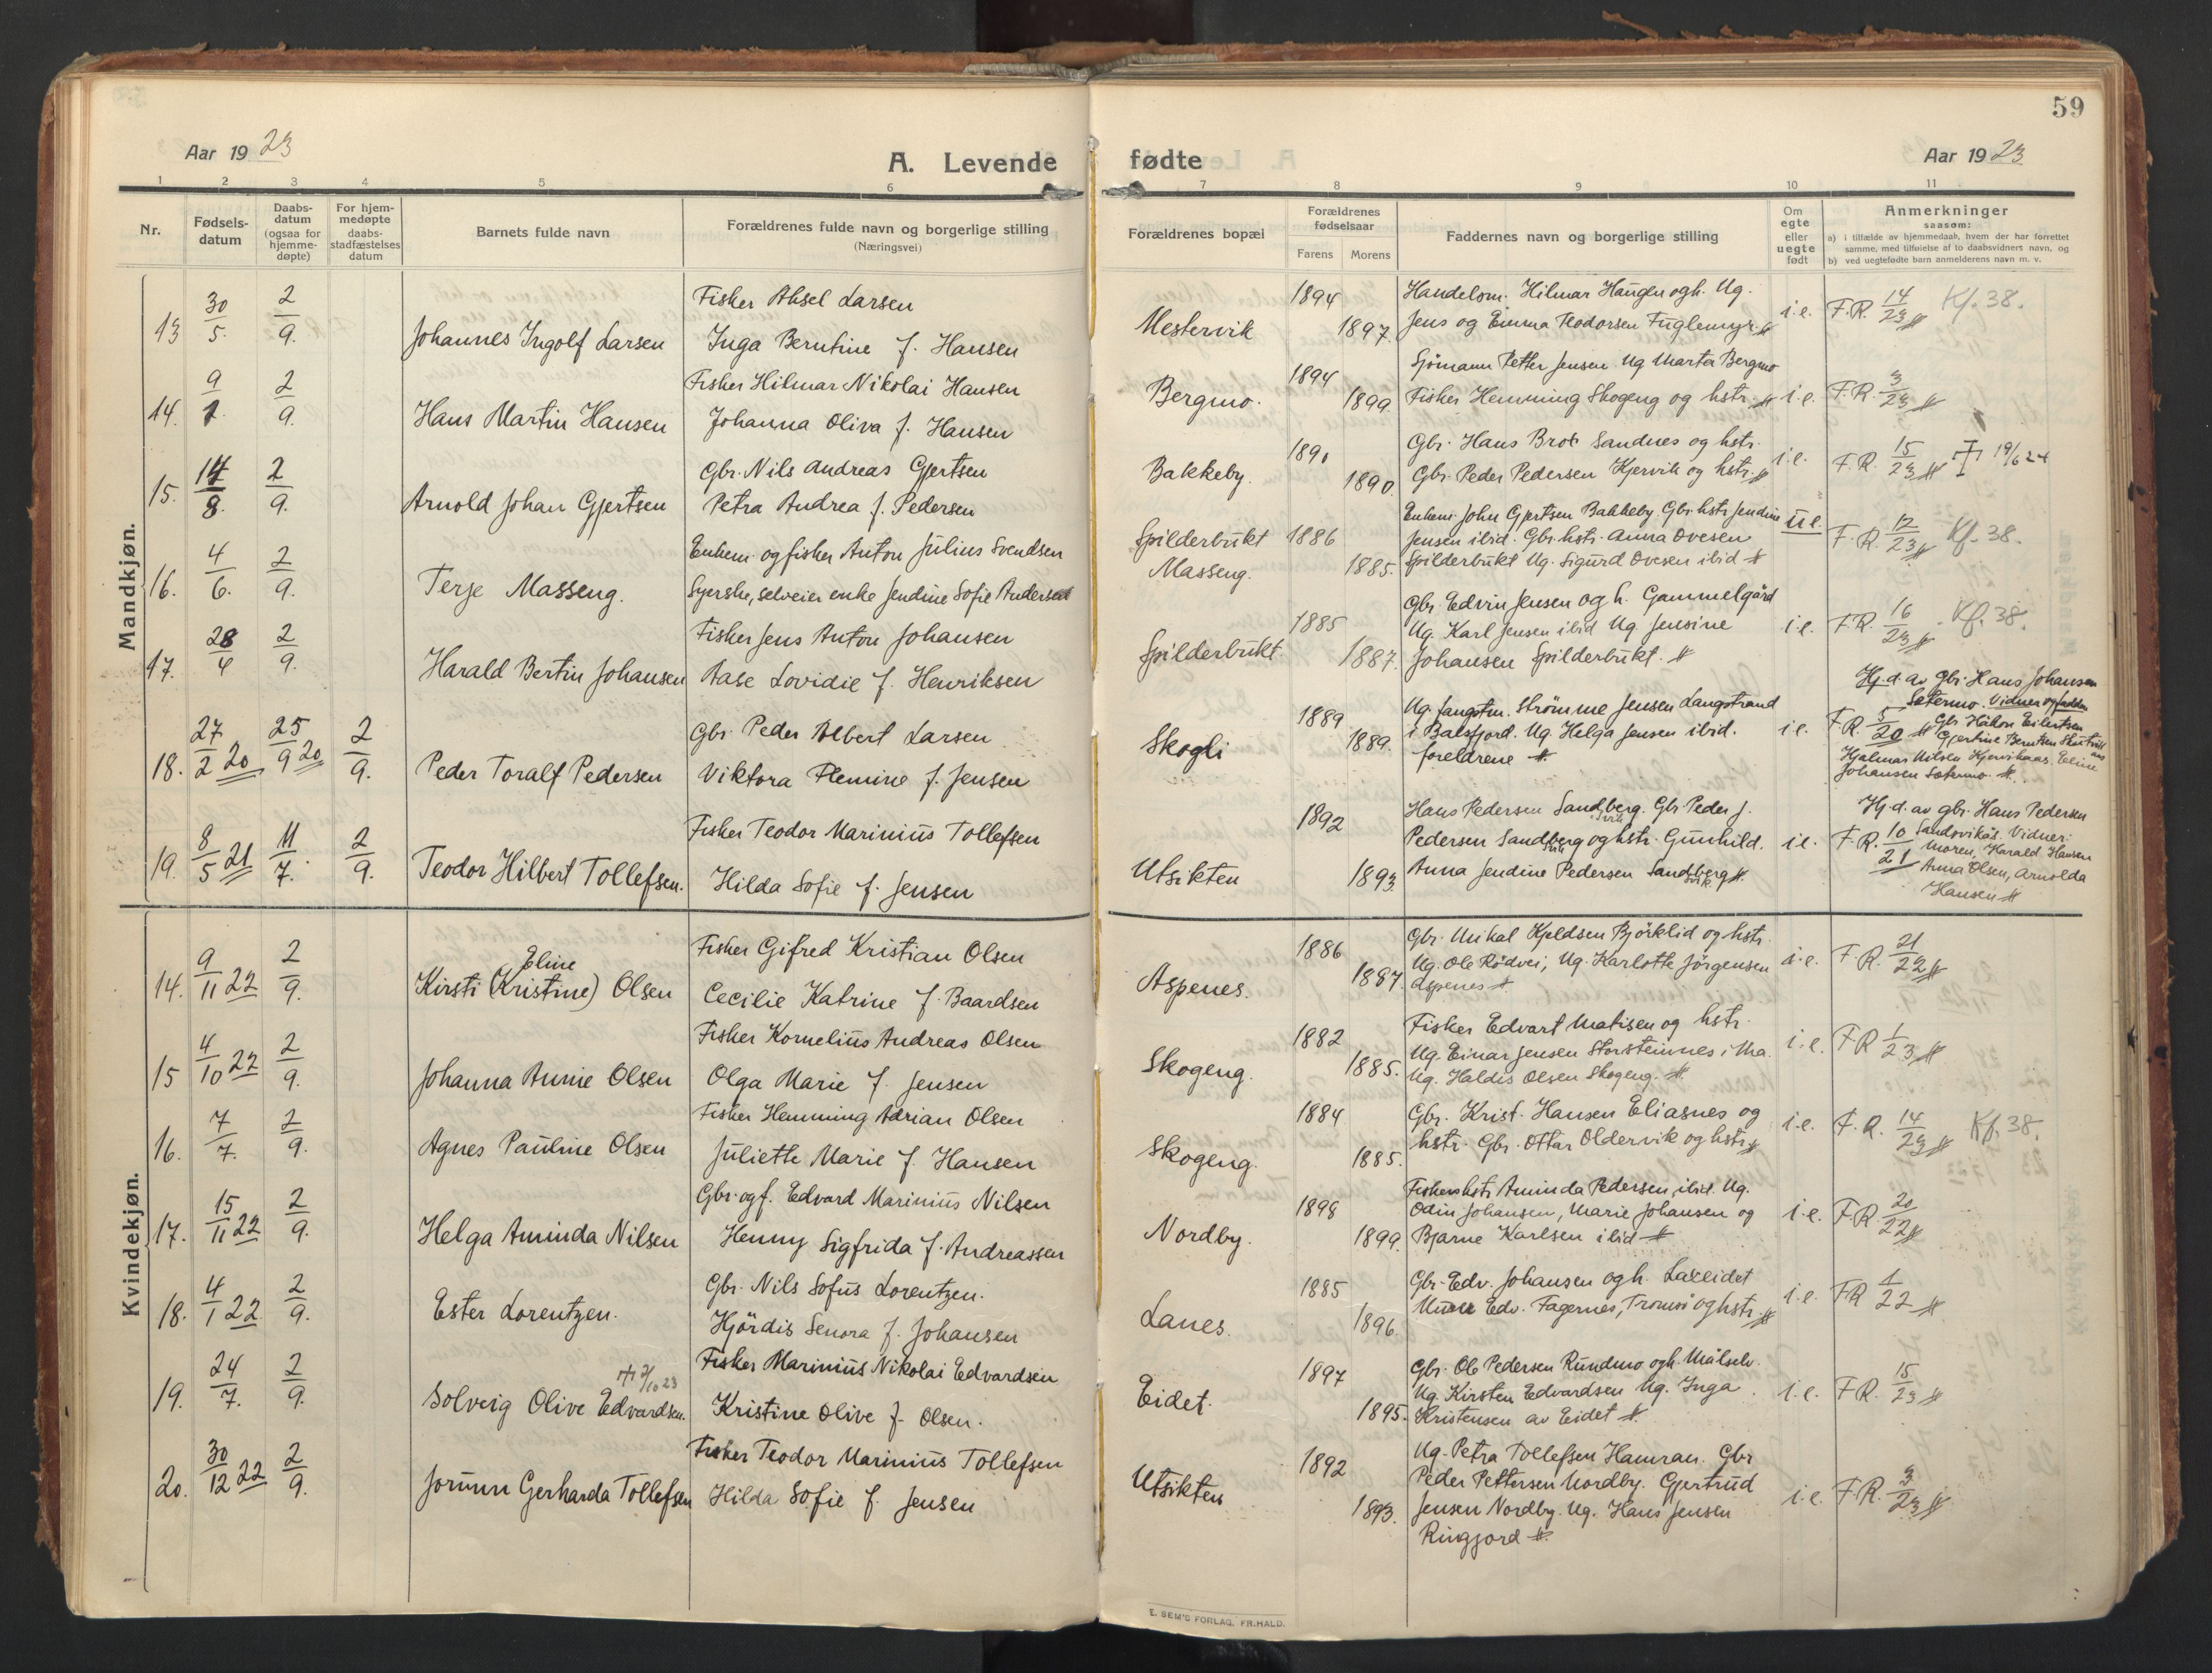 59
Aar 1923
A. Levende fødte
Aar 1923
1 2 3 4 5 6 7 8 9 10 11
Nr.
Fødsels-
datum
Daabs-
datum
(ogsaa for
hjemme-
døpte)
For hjem-
medøpte
daabs-
stadfæstelses
datum
Barnets fulde navn
Forældrenes fulde navn og borgerlige stilling
(Næringsvei)
Forældrenes bopæl
Forældrenes
fødselsaar
Farens Morens
Faddernes navn og borgerlige stilling
Om
egte
eller
uegte
født
Anmerkninger
saasom:
a) i tilfælde av hjemmedaab, hvem der har forrettet
samme, med tilføielse af to daabsvidners navn, og
b) ved uegtefødte barn anmelderens navn m. v.
Mandkjøn.
13 30/5. 2/9. Johannes Ingolf Larsen
Fisker Aksel Larsen
Inga Berntine f. Hansen
Mestervik 1894 1897.
Handelsm. Hilmar Haugen og h. Ug.
Jens og Emma Teodorsen Fuglemyr.
i.e. F.R. 14/23 Kf. 38.
14. 9/1. 2/9. Hans Martin Hansen
Fisker Hilmar Nikolai Hansen
Johanna Oliva f. Hansen
Bergmo. 1894 1899
Sjömann Petter Jensen Ug Marta Bergmo
Fisker Hemming Skogeng og hstr.
i.e. F.R. 3/23
15. 14/8. 2/9. Arnold Johan Gjertsen
Gbr. Nils Andreas Gjertsen
Petra Andrea f. Pedersen
Bakkeby. 1891 1890
Gbr. Hans Brox Sandnes og hstr.
Gbr. Peder Pedersen Kjervik og hstr.
i.e. F.R. 15/23 † 19/6 24
16. 4/6. 2/9. Terje Masseng.
Enkem. og fisker Anton Julius Svendsen
Syerske, selveier enke Jendine Sofie Andersen
Spilderbukt 1886
Masseng. 1885.
Enkem. John Gjertsen Bakkeby. Gbr. hstr Jendine
Jensen ibid. Gbr. hstr. Anna Ovesen
Spilderbukt Ug. Sigurd Ovesen ibid
u.e. F.R. 12/23 Kf. 38.
17. 28/4 2/9. Harald Bertin Johansen
Fisker Jens Anton Johansen
Aase Lovidie f. Henriksen
Spilderbukt. 1885 1887.
Gbr. Edvin Jensen og h. Gammelgård
Ug. Karl Jensen ibid Ug Jensine
Johansen Spilderbukt.
i.e. F.R. 16/23 Kf. 38.
18. 27/2 20 25/9 20 2/9. Peder Toralf Pedersen
Gbr. Peder Albert Larsen
Viktora Flemine f. Jensen
Skogli 1889 1889.
Ug. fangstm. Strømme Jensen Langstrand
i Balsfjord. Ug Helga Jensen ibid.
foreldrene
i.e. F.R. 5/20
Hj.d. av Gbr. Hans Johansen
Sætermo. Vidner og faddere
Gbr Håkon Eilertsen
Gjertine Berntsen
Hjalmar Nilsen Kjervikaas. Eline
Johansen Sætermo
19. 8/5 21 11/7. 2/9. Teodor Hilbert Tollefsen.
Fisker Teodor Marinius Tollefsen
Hilda Sofie f. Jensen
Utsikten 1892 1893
Hans Pedersen Sandberg. Gbr. Peder J.
Pedersen Sandberg og hstr. Gunhild.
Anna Jendine Pedersen Sandberg
i.e. F.R. 10/21
Hj.d. av gbr. Hans Pedersen
Sandsvikås. Vidner:
Moren, Harald Hansen
Anna Olsen, Arnolda
Hansen
Kvindekjøn.
14. 9/11 22 2/9. Kirsti (Kristine) Eline Olsen
Fisker Gifred Kristian Olsen
Cecilie Katrine f. Baardsen
Aspenes. 1886 1887
Gbr. Mikal Kjeldsen Björklid og hstr.
Ug. Ole Rödvei, Ug. Karlotte Jörgensen
Aspenes
i.e. F.R. 21/22
15 4/10 22 2/9. Johanna Annie Olsen
Fisker Kornelius Andreas Olsen
Olga Marie f. Jensen
Skogeng. 1882 1885.
Fisker Edvart Matisen og hstr.
Ug. Einar Jensen Storsteinnes i Ma.
Ug. Haldis Olsen Skogeng.
i.e. F.R 1/23
16. 7/7. 2/9. Agnes Pauline Olsen
Fisker Hemming Adrian Olsen
Juliette Marie f. Hansen
Skogeng. 1884 1885.
Gbr. Krist. Hansen Eliasnes og
hstr. Gbr. Ottar Oldervik og hstr
i.e. F.R. 14/23 Kf. 38.
17. 15/11 22 2/9. Helga Aminda Nilsen
Gbr. og f. Edvard Marinius Nilsen
Henny Sigfrida f. Andreassen
Nordby. 1898 1899.
Fiskershstr Aminda Pedersen, ibid. Ug.
Odin Johansen, Marie Johansen og
Bjarne Karlsen ibid
i.e. F.R. 20/22
18. 4/1 22 2/9. Ester Lorentzen.
Gbr. Nils Sofus Lorentzen.
Hjördis Senora f. Johansen
Lanes. 1885 1896.
Gbr. Edv. Johansen og h. Lakseidet
Edv. Fagernes, Tromsö og hstr.
i.e. FR 1/22
19. 24/7. 2/9. Solveig Olive Edvardsen.
Fisker Marinius Nikolai Edvardsen
Kristine Olive f. Olsen.
Eidet. 1897 1895.
Gbr. Ole Pedersen Rundmo og h. Målselv.
Ug. Kirsten Edvardsen Ug. Inga
Kristensen av Eidet
i.e. F.R. 15/23
20. 30/12 22 2/9. Jorunn Gerharda Tollefsen
Fisker Teodor Marinius Tollefsen
Hilda Sofie f. Jensen
Utsikten 1892 1893.
Ug. Petra Tollefsen Hamran. Gbr
Peder Pettersen Nordby. Gjertrud
Jensen Nordby. Ug. Hans Jensen
Ringjord
i.e. F.R. 3/23
E. SEM'S FORLAG, FR.HALD.